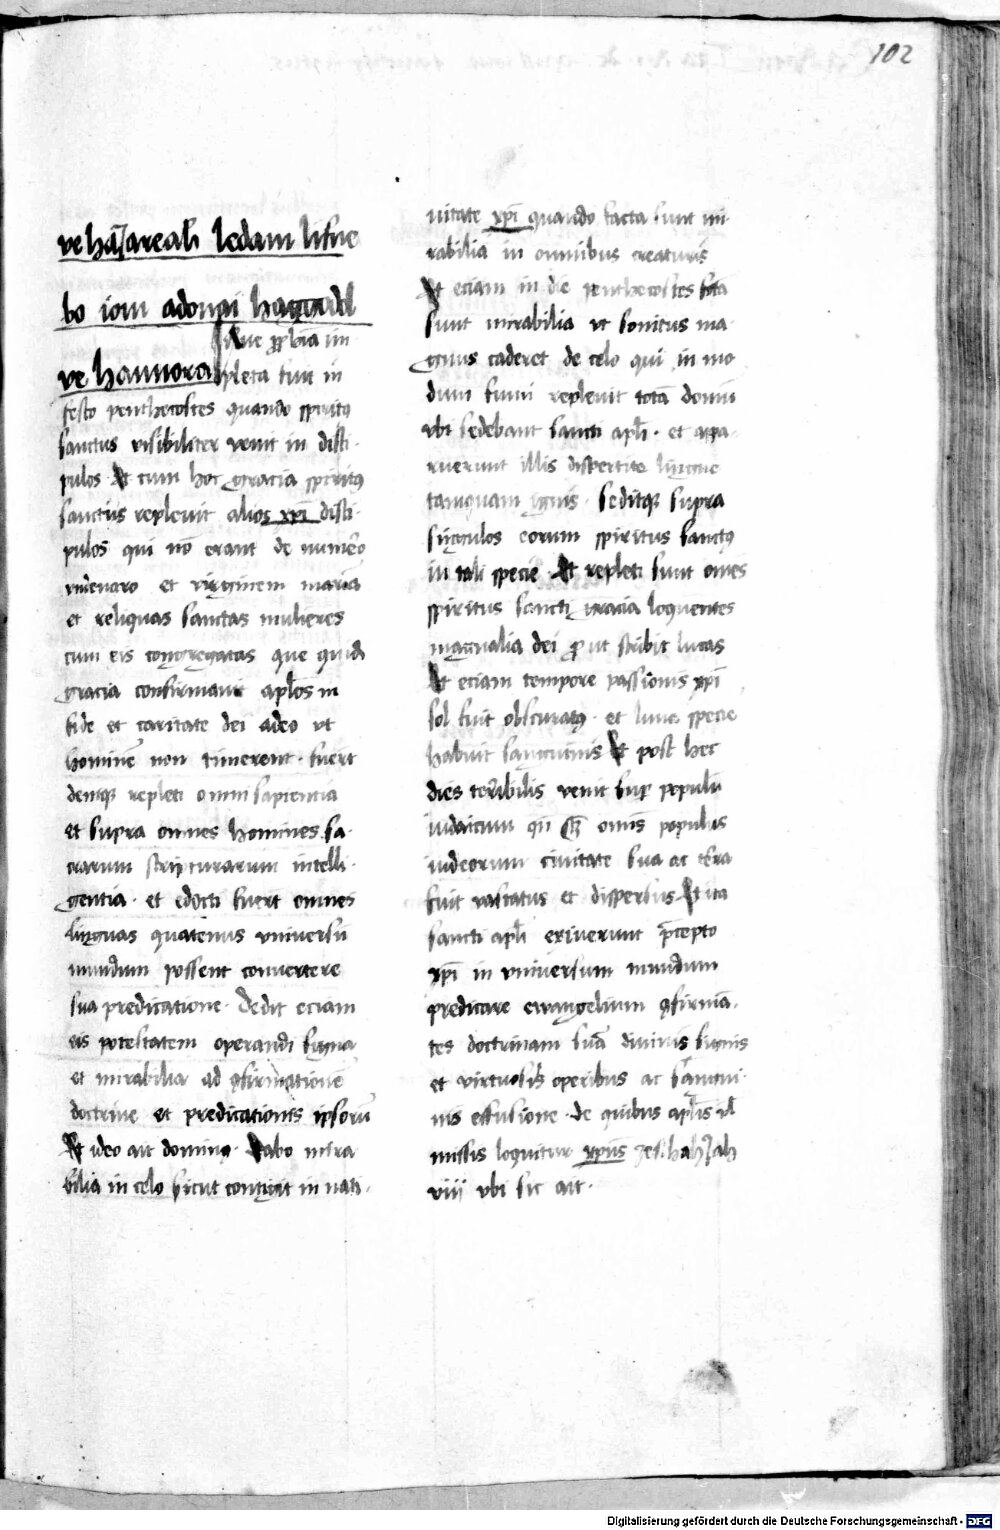 102
ve haJareah ledam lifne
bo iom adonai haggadol
ve hannora
Que ꝓph̄ia im
pleta fuit in
festo penthecostes quando spiritꝰ
sanctus visibiliter venit in disci
pulos Et cum hoc gracia spiritꝰ
sanctus replevit alios xpi disci
pulos qui nō erant de numero
duodenaro et virginem mariā
et reliquas sanctas mulieres
cum eis congregatas que quidē
gracia confirmavit apl̄os in
fide et caritate dei adeo vt
hominē non timerent fuert
denique repleti omni sapiencia
et supra omnes homines sa
crarum scripturarum intelli
gentia et edocti fuert omnes
linguas quatenus vniversū
mundum possent convertere
sua predicatione Dedit eciam
eis potestatem operandi signa
et mirabilia ad ꝯfirmationē
doctrine et predicationis ipsorū
Et ideo ait dominꝰ Dabo mira
bilia in celo sicut contigit in nati
vitate xpi quando facta sunt mi
rabilia in omnibus creaturis
Et eciam in die penthecostes facta
sunt mirabilia vt sonitus ma
gnus caderet de celo qui in mo
dum fumi replevit totā domū
vbi sedebant sancti apl̄i et appa
ruerunt illis dispertite lingue
tamquam ignis seditque supra
singulos eorum spiritus sanctꝰ
in tali specie Et repleti sunt omēs
spiritus sancti gracia loquentes
magnalia dei ꝓ ut scribit lucas
Et eciam tempore passionis xpi
sol fuit obscuratꝰ et luna specie
habuit sanguinis Et post hec
dies terribilis venit suꝑ populū
iudaicum qn̄ omīs populus
iudeorum civitate sua ac terra
fuit vastatus et dispersus Et ita
sancti apl̄i exiverunt p̄cepto
xpi in vniversum mundum
predicare ewangelium ꝯfirmā
tes doctrinam suā divinis signis
et virtuosis operibus ac sangui
nis effusione de quibus apl̄is
missis loquitur xpus
viij vbi sic ait
Digitalisierung gefördert durch die Deutsche Forschungsgemeinschaft - DFG